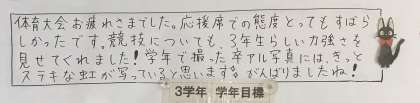 体育大会お疲れさまでした。応援席での態度とってもすばら
しかったです。競技についても、3年生らしい力強さを
見せてくれました！学年で撮った卒アル写真には、きっと
ステキな虹が写っていると思います。がんばりましたね！
3学年 学年目標